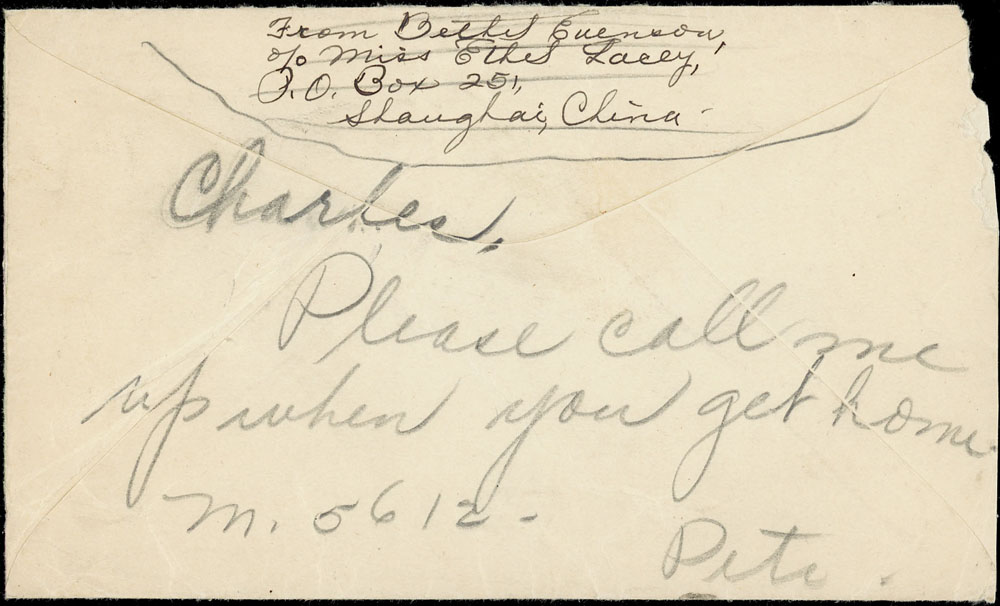 From Bethel Evenson,
c/o Miss Ethel Lacey,
P.O. Box 251,
Shanghai, China
Charles,
Please call me
up when you get home
M. 5612-
Pete.